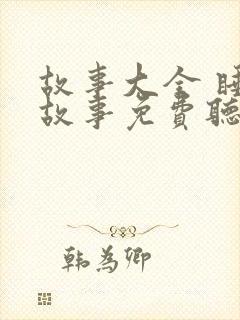 故事大全 睡
故事免費聽
韩为卿